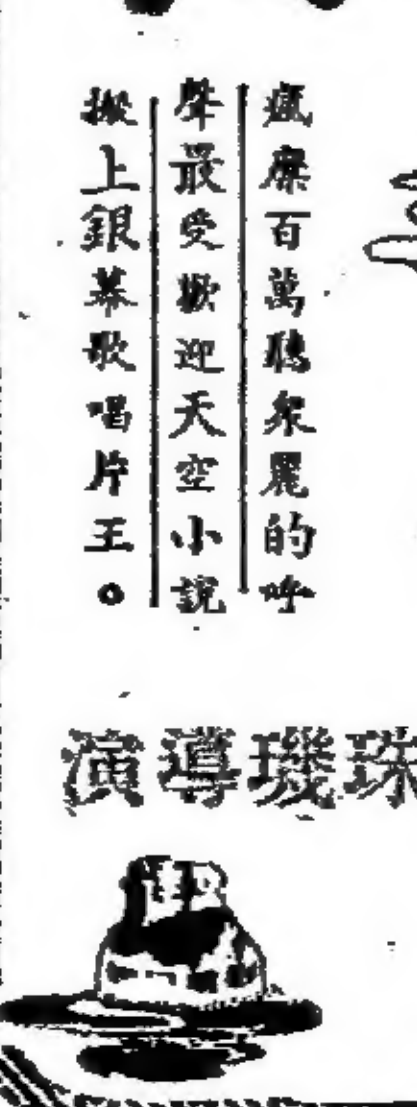 瘋糜百萬聽衆麗的呼
聲最受歡迎天空小說
搬上銀幕歌唱片王。
珠璣導演